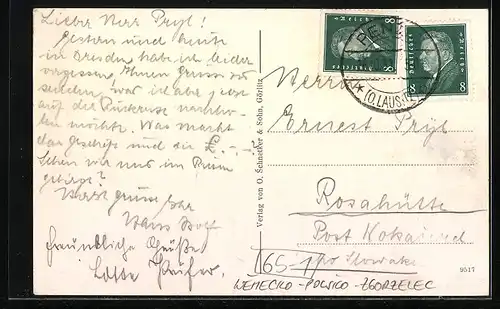 Lieber Herr Pryl!
Gestern und heute
in Dresden habe ich leider
vergessen, Ihnen Grüsse zu
senden, was ich aber jetzt
auf der Rückreise nachho-
len möchte. Was macht
das Geschäft und die
Sehen wir uns im Riesen
gebirge?
Herzl. grüsst Sie
Hans
freundliche Grüße
Lotte
Verlag von O. Schmettler & Sohn, Görlitz
Deutsches Reich
8
8
Deutsches Reich
8
8
(O.LAUS.)
Herrn
Ernest Pryl
Rosahütte
Post Koka
Slowakei
165-1
9517
NEMECKO - POLSKO - ZGORZELEC